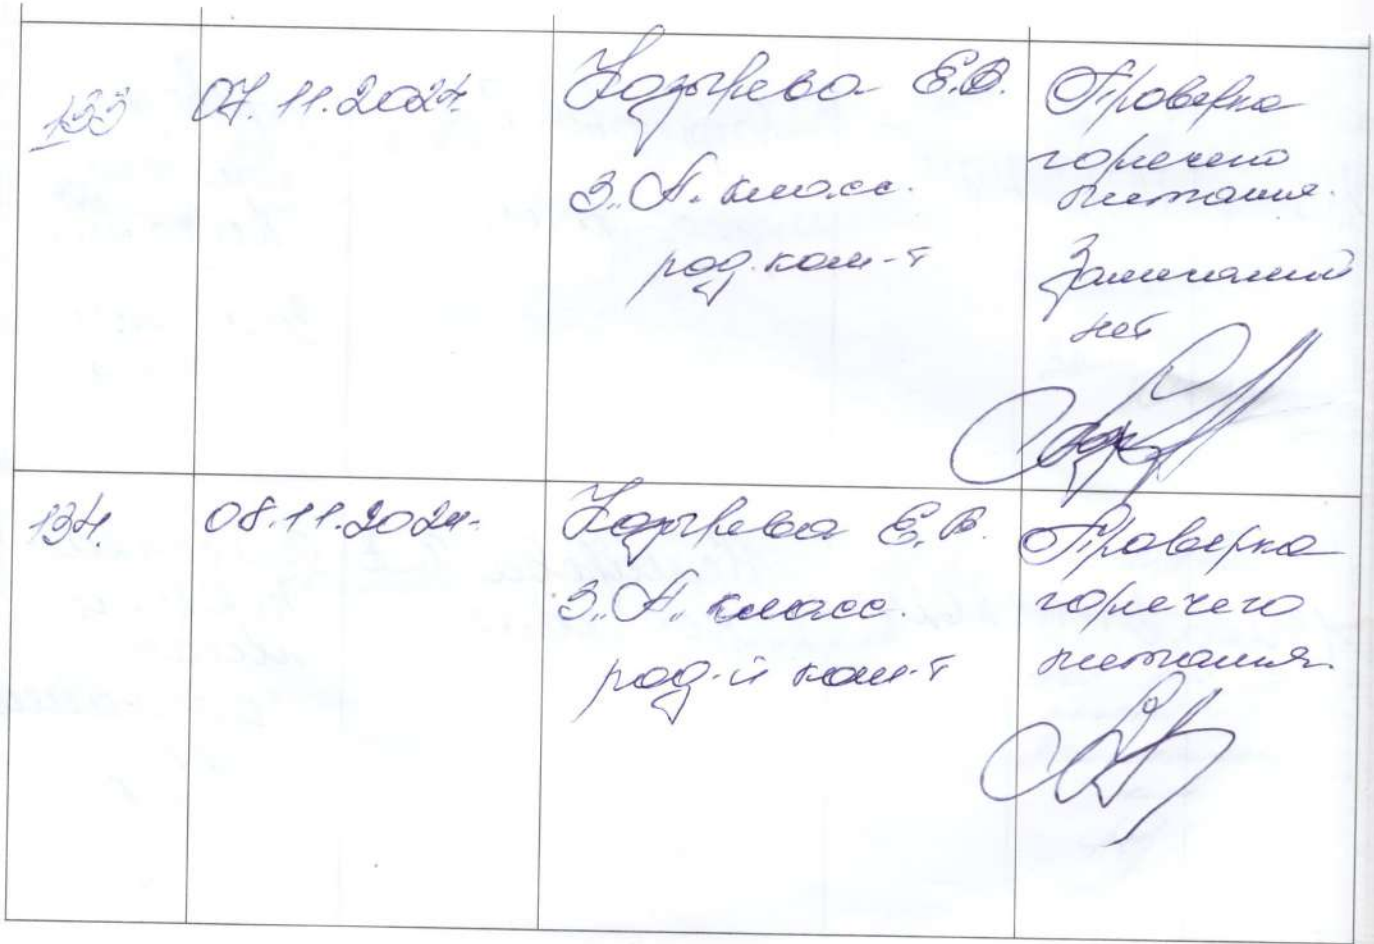 133
07.11.2024.
Козырева Е.В.
3„А„ класс.
род. ком-т
Проверка
горячего
питания.
Замечаний
нет
134.
08.11.2024.
Козырева Е.В.
3„А„ класс.
род-й ком-т
Проверка
горячего
питания.